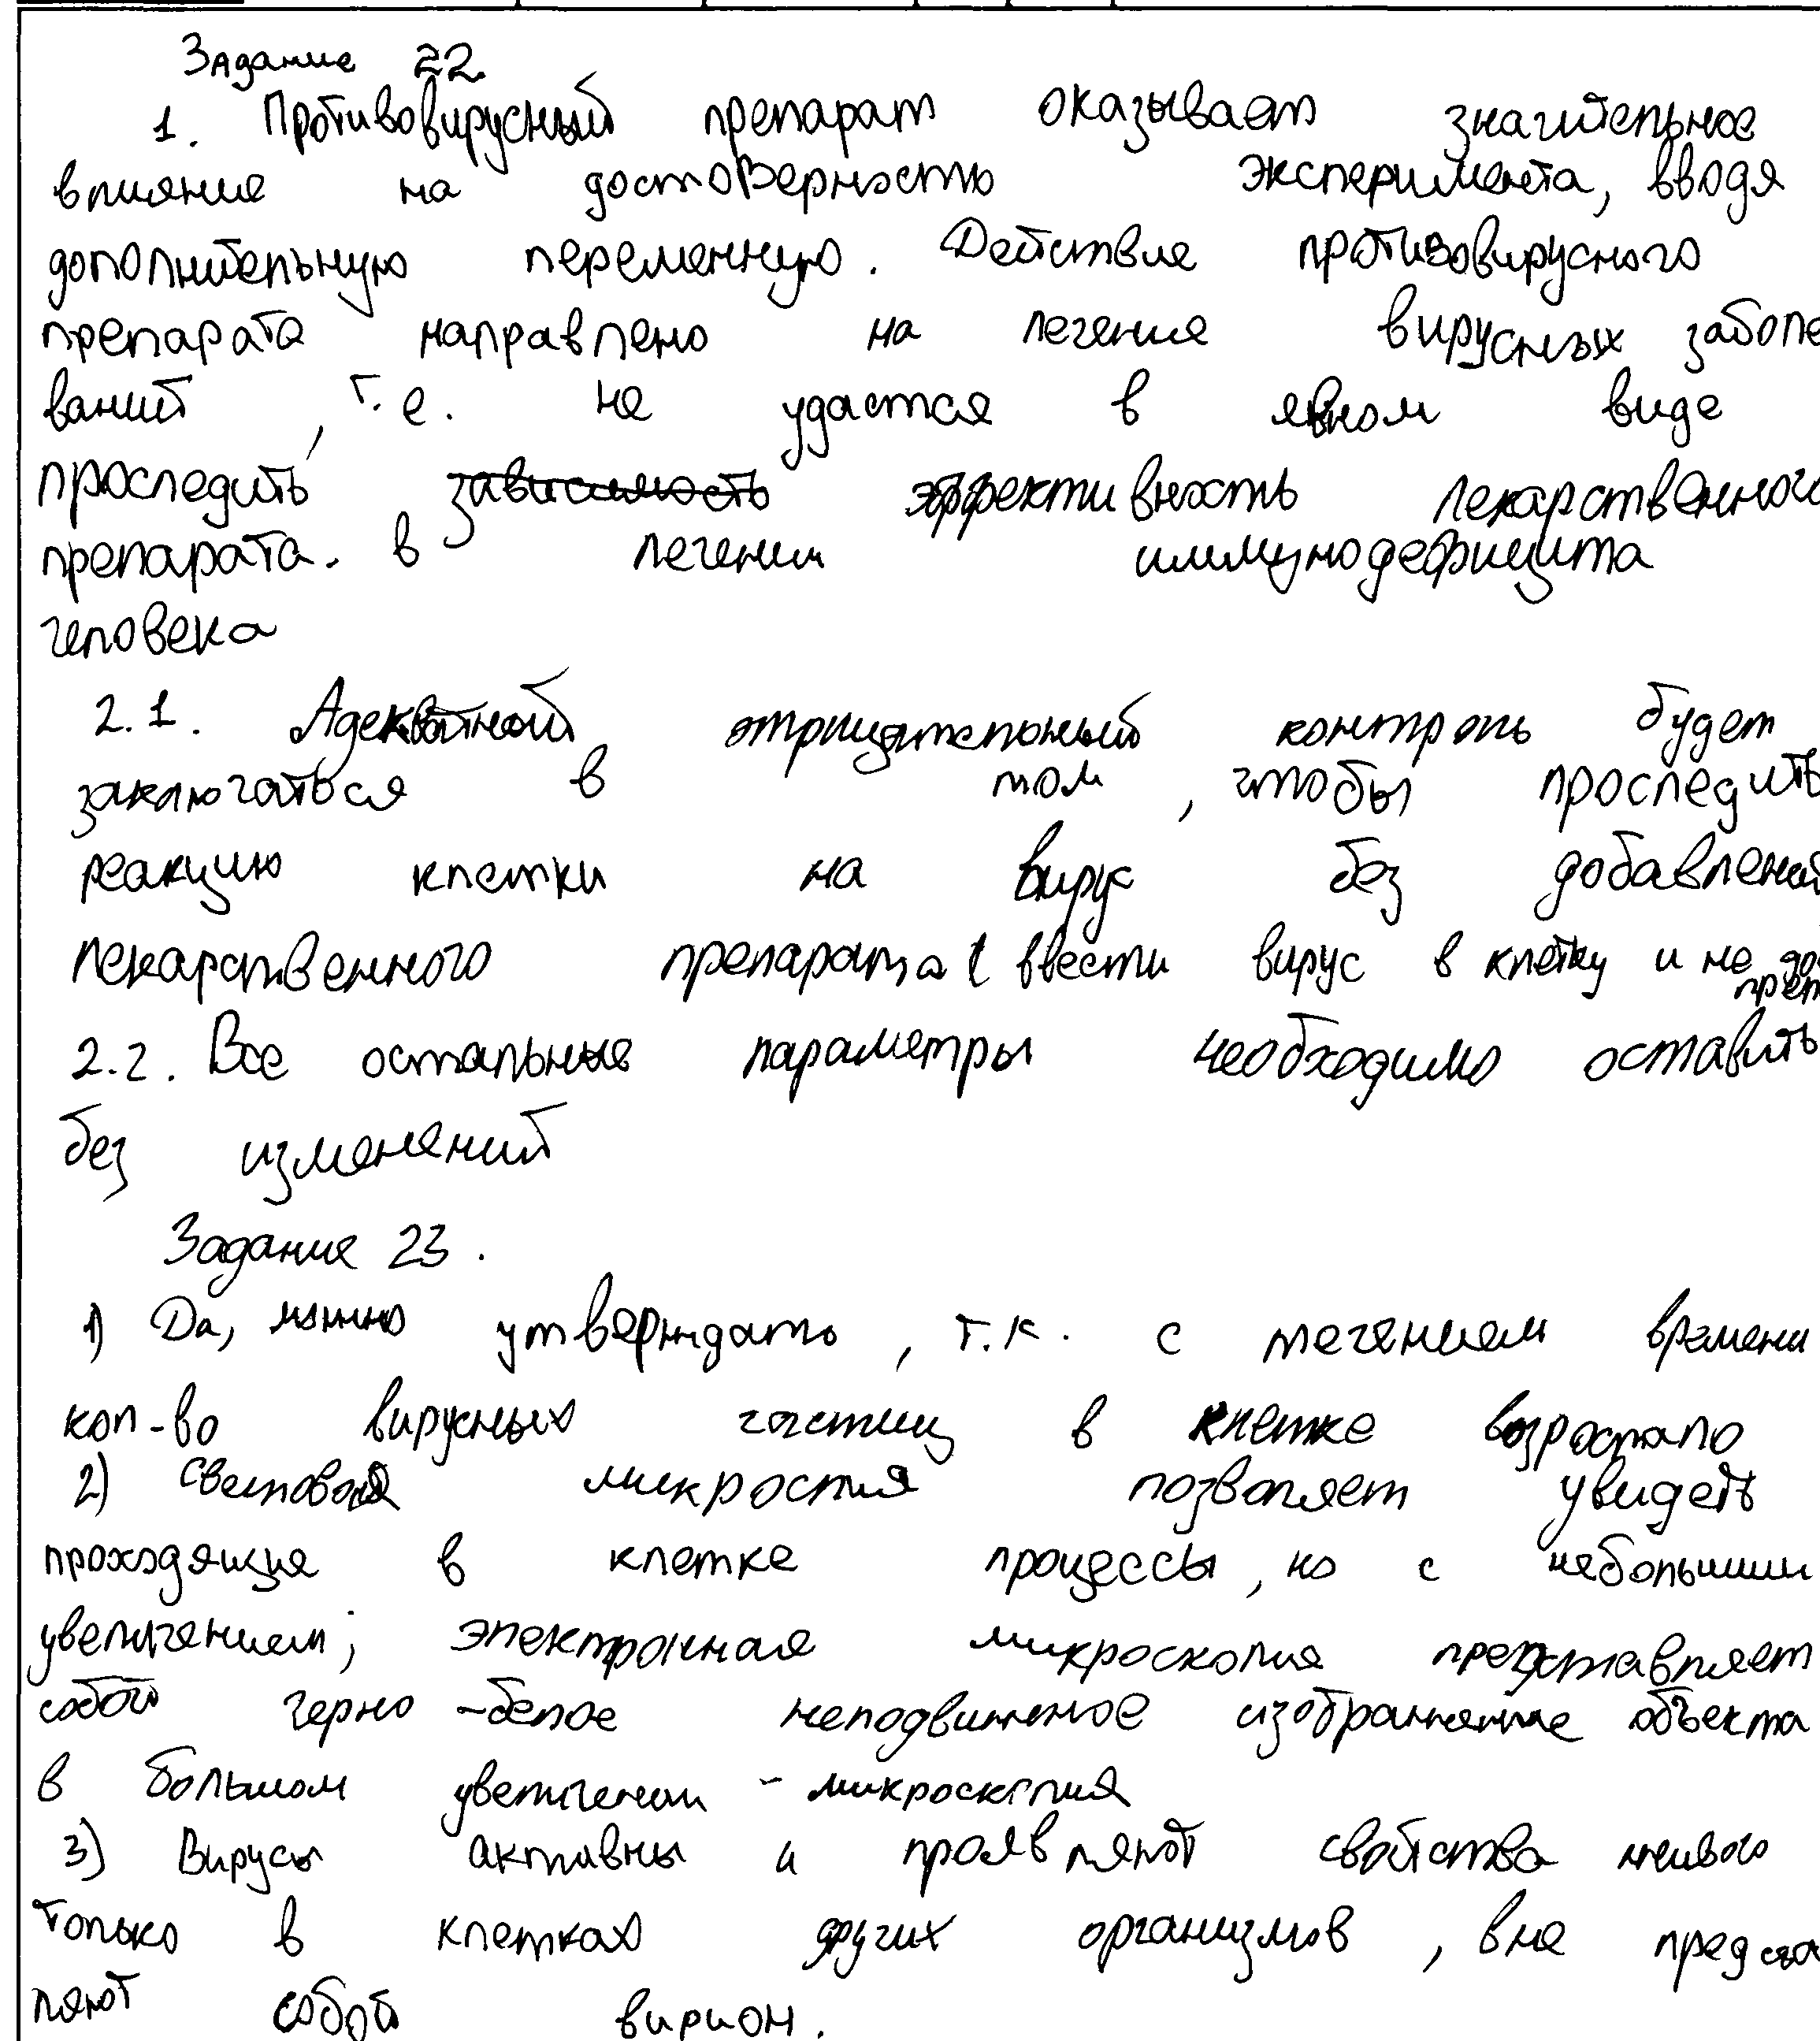 Задание 22.
1. Противовирусный препарат оказывает значительное
влияние на достоверность эксперимента, вводя
дополнительную переменную. Действие противовирусного
препарата направлено на лечение вирусных заболе
ваний, т.е. не удастся в явном виде
проследить зависимость эффективность лекарственного
препарата. в лечении иммунодефицита
человека
2.1. Адекватной отрицательный контроль будет
заключаться в том, чтобы проследить
реакцию клетки на вирус без добавлений
лекарственного препарата ( ввести вирус в клетку и не
2.2. Все остальные параметры необходимо оставить
без изменений
Задание 23.
1) Да, можно утверждать, т.к. с течением времени
кол-во вирусных частиц в клетке возростало
2) световая микроспия позволяет увидеть
проходящие в клетке процессы, но с небольшим
увеличением; электронная микроскопия представляет
собой черно-белое неподвижное изображение объекта
в большом увеличении - микроскопия
3) Вирусы активны и проявляют свойства живого
только в клетках других организмов, вне предста
ляют собой вирион.